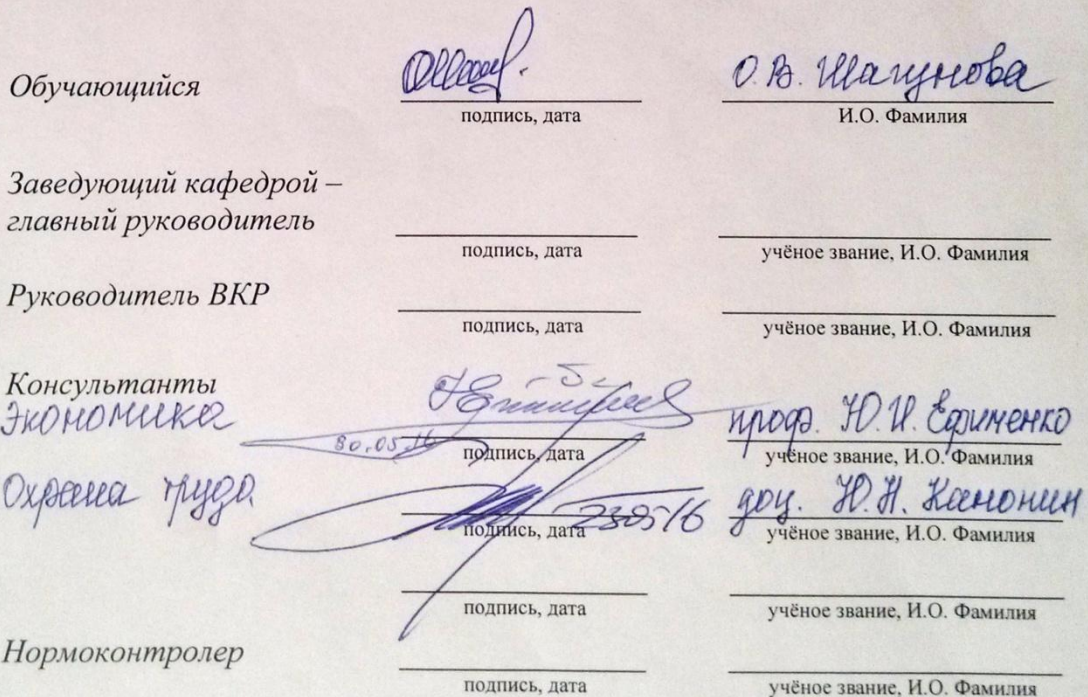 Обучающийся О.В. Шагунова
подпись, дата И.О. Фамилия
Заведующий кафедрой –
главный руководитель
подпись, дата учёное звание, И.О. Фамилия
Руководитель ВКР
подпись, дата учёное звание, И.О. Фамилия
Консультанты
Экономика проф. Ю.И. Ефименко
30.05.16 подпись, дата учёное звание, И.О. Фамилия
Охрана труда 230516 доц. Ю.Н. Канонин
подпись, дата учёное звание, И.О. Фамилия
подпись, дата учёное звание, И.О. Фамилия
Нормоконтролер
подпись, дата учёное звание, И.О. Фамилия